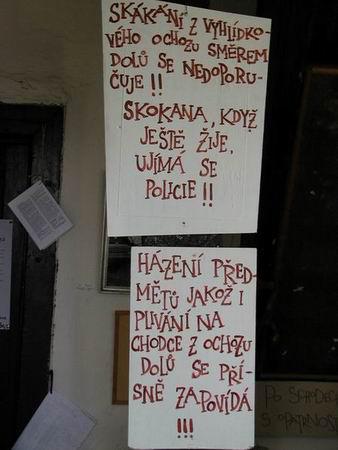 SKÁKÁNÍ Z VYHLÍDKO-
VÉHO OCHOZU SMĚREM
DOLŮ SE NEDOPORU-
ČUJE !!
SKOKANA, KDYŽ
JEŠTĚ ŽIJE,
UJÍMÁ SE
POLICIE !!
HÁZENÍ PŘED-
MĚTŮ JAKOŽ I
PLIVÁNÍ NA
CHODCE Z OCHOZU
DOLŮ SE PŘÍ-
SNĚ ZAPOVÍDÁ
!!!
PO
S OPATRNOST